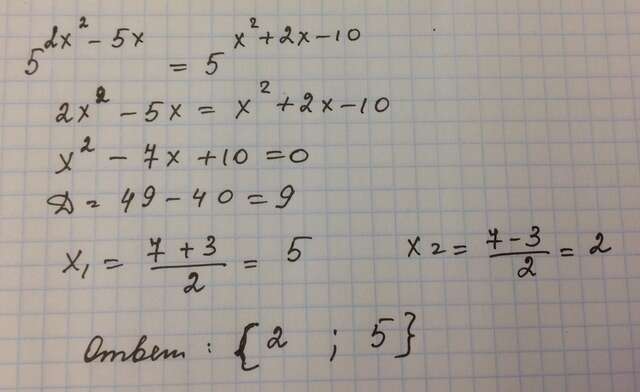 5^(2x² - 5x) = 5^(x² + 2x - 10)
2x² - 5x = x² + 2x - 10
x² - 7x + 10 = 0
D = 49 - 40 = 9
x₁ = (7 + 3)/2 = 5 x₂ = (7 - 3)/2 = 2
Ответ: {2 ; 5}